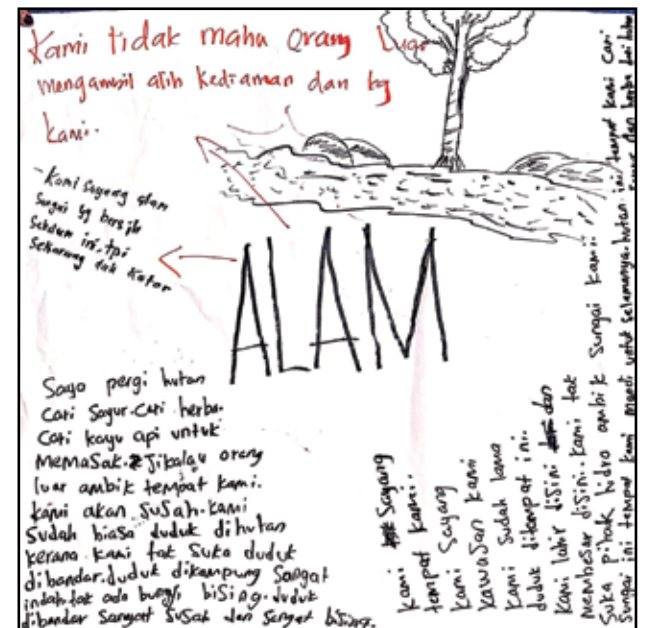 Kami tidak mahu Orang Luar
mengambil alih Kediaman dan kg
Kami.
- Kami Sayang alam
Sungai yg bersih
Sebelum ini, tpi
Sekarang dah Kotor
ALAM
Saya pergi hutan
Cari Sayur. Cari herba.
Cari kayu api untuk
MEMASak. Jikalau orang
luar ambik tempat kami.
kami akan SuSah. Kami
Sudah biasa duduk dihutan
kerana kami tak Suka duduk
dibandar. duduk dikampung Sangat
indah. tak ada bunyi biSing. duduk
dibandar Sangat Susah dan Sangat bising.
Kami Sayang
tempat kami.
Kami Sayang
KawaSan Kami
Kami Sudah lama
duduk ditempat ini.
Kami lahir diSini dan
membesar diSini. Kami tak
Suka pihak hidro ambik Sungai Kami.
Sungai ini tempat kami mandi untuk Selamanya. hutan ini tempat kami Cari